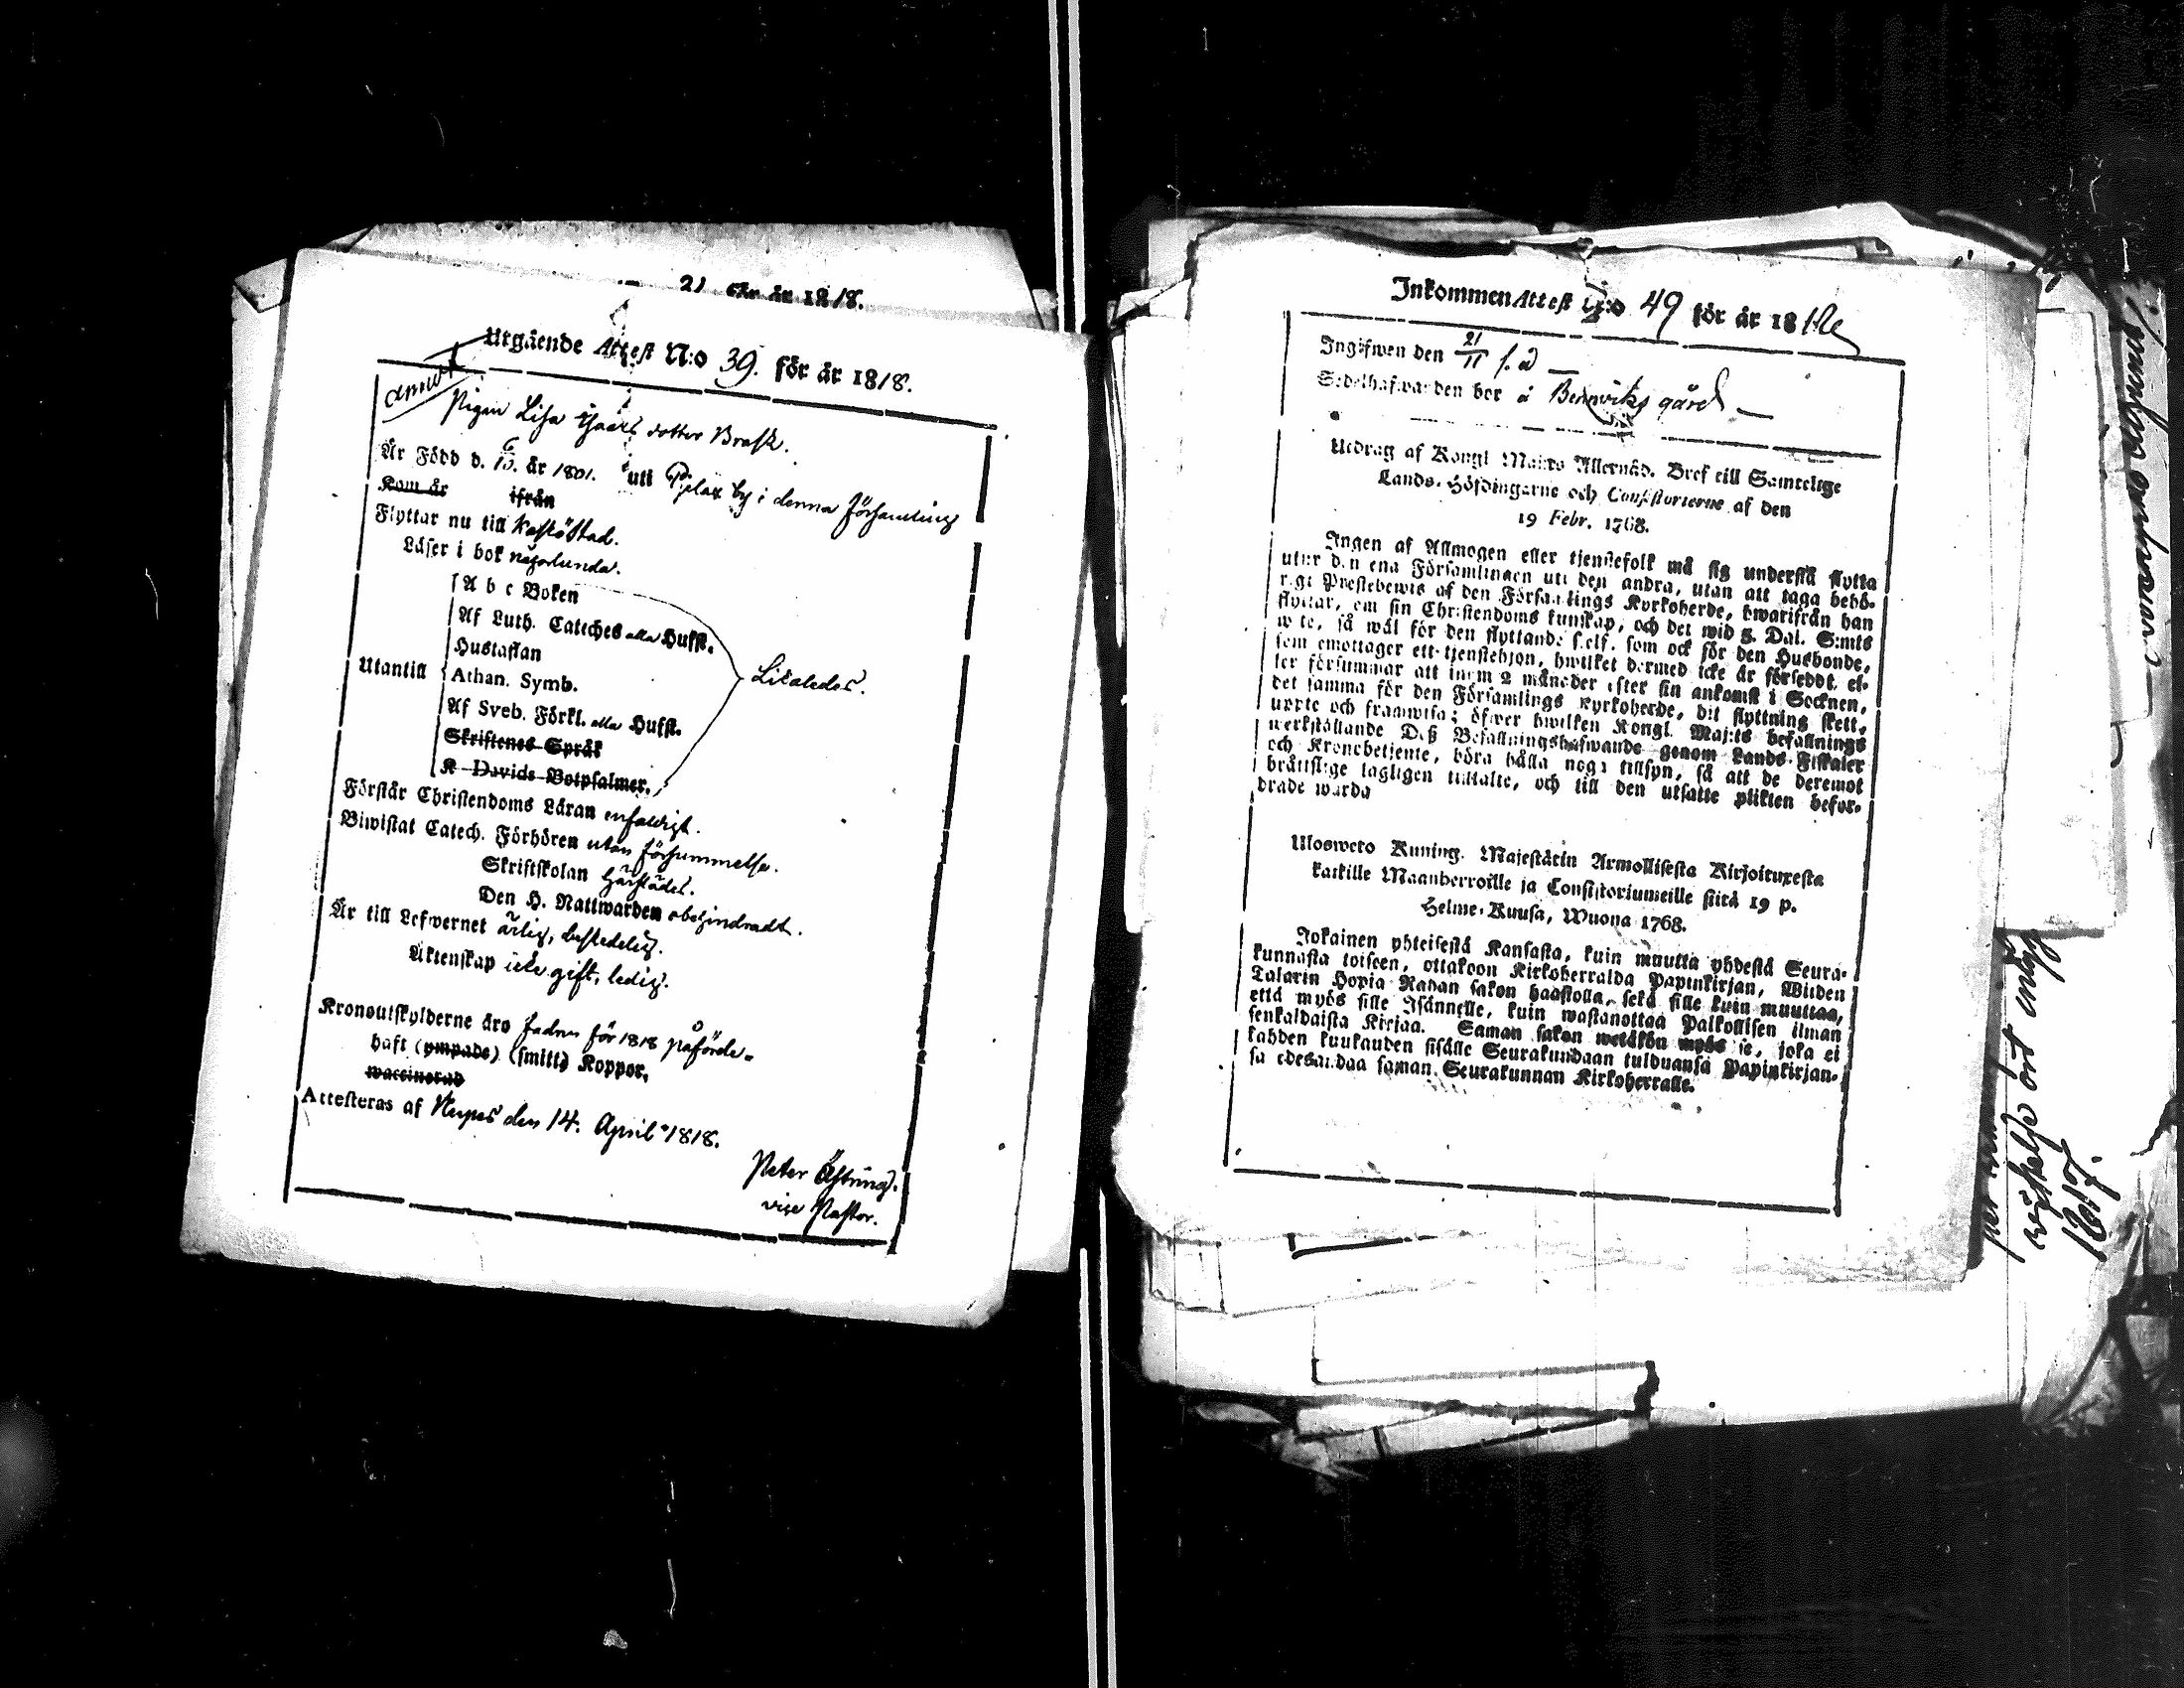 21 för år 1818.
Utgående Attest N:o 39. för år 1818.
Pigan Lisa Isaacs dotter Brask.
Är Född d. år 1801. uti Pjelax by i denna församling
Kom år ifrån
Flyttar nu till Kaskö Stad.
Läser i bok någorlunda.
A b c Boken
Af Luth. Cateches alla Hufst.
Hustaflan
Utantill Athan. Symb. Likaledes.
Af Sveb. Förkl. alla Hufst.
Skriftenes Språk
K Davids Botpsalmer.
Förstår Christendoms Läran enfaldigt.
Biwistat Catech. Förhören utan försummelse.
Skriftskolan härstädes.
Den H. Nattwarden obehindradt.
Är till Lefwernet ärlig, beskedelig.
Äktenskap icke gift, ledig.
Kronoutskylderne äro för 1818 påförde.
haft (ympade) (smitt) Koppor,
waccinerad
Attesteras af Nerpes den 14. April 1818.
Peter
vice Pastor.
Inkommen Attest N:o 49 för år 18
Ingifwen den 21/11 s. d —
Sedelhafwarden bor å gård —
Utdrag af Kongl Maj:ts Allernåd. Bref till Samtelige
Lands-Höfdingarne och Consistorierne af den
19 Febr. 1768.
Ingen af Allmogen eller tjenstefolk må sig understå flytta
utur den ena Församlingen uti den andra, utan att taga behö-
rigt Prestebewis af den Församlings Kyrkoherde, hwarifrån han
flyttar, om sin Christendoms kunskap, och det wid 5. Dal. S:mts
wite, så wäl för den flyttande self, som ock för den Husbonde,
som emottager ett tjenstehjon, hwilket dermed icke är försedt, el-
ler försummar att inom 2 månader efter sin ankomst i Socknen,
det samma för den Församlings Kyrkoherde, dit flyttning skett,
uppte och framwisa; öfwer hwilken Kongl. Maj:ts befallnings
werkställande Deß Befallningshafwande genom Lands-Fiskaler
och Kronobetjente, böra hålla noga tillsyn, så att de deremot
bråttslige lagligen tilltalte, och till den utsatte plikten befor-
drade warda
Ulosweto Kuning. Majestätin Armollisesta Kirjoituxesta
kaikille Maanherroille ja Consistoriumeille siitä 19 p.
Helme-Kuusa, Wuona 1768.
Jokainen yhteisestä Kansasta, kuin muutta yhdestä Seura-
kunnasta toiseen, ottakoon Kirkoherralda Papinkirjan, Wiiden
Talarin Hopia Rahan sakon haastolla, sekä sille kuin muuttaa,
että myös sille Isännelle, kuin wastanottaa Palkollisen ilman
senkaldaista Kirjaa. Saman sakon wetäkön myös se, joka ei
kahden kuukauden sisälle Seurakundaan tulduansa Papinkirjan-
sa edesandaa saman Seurakunnan Kirkoherralle.
1817.